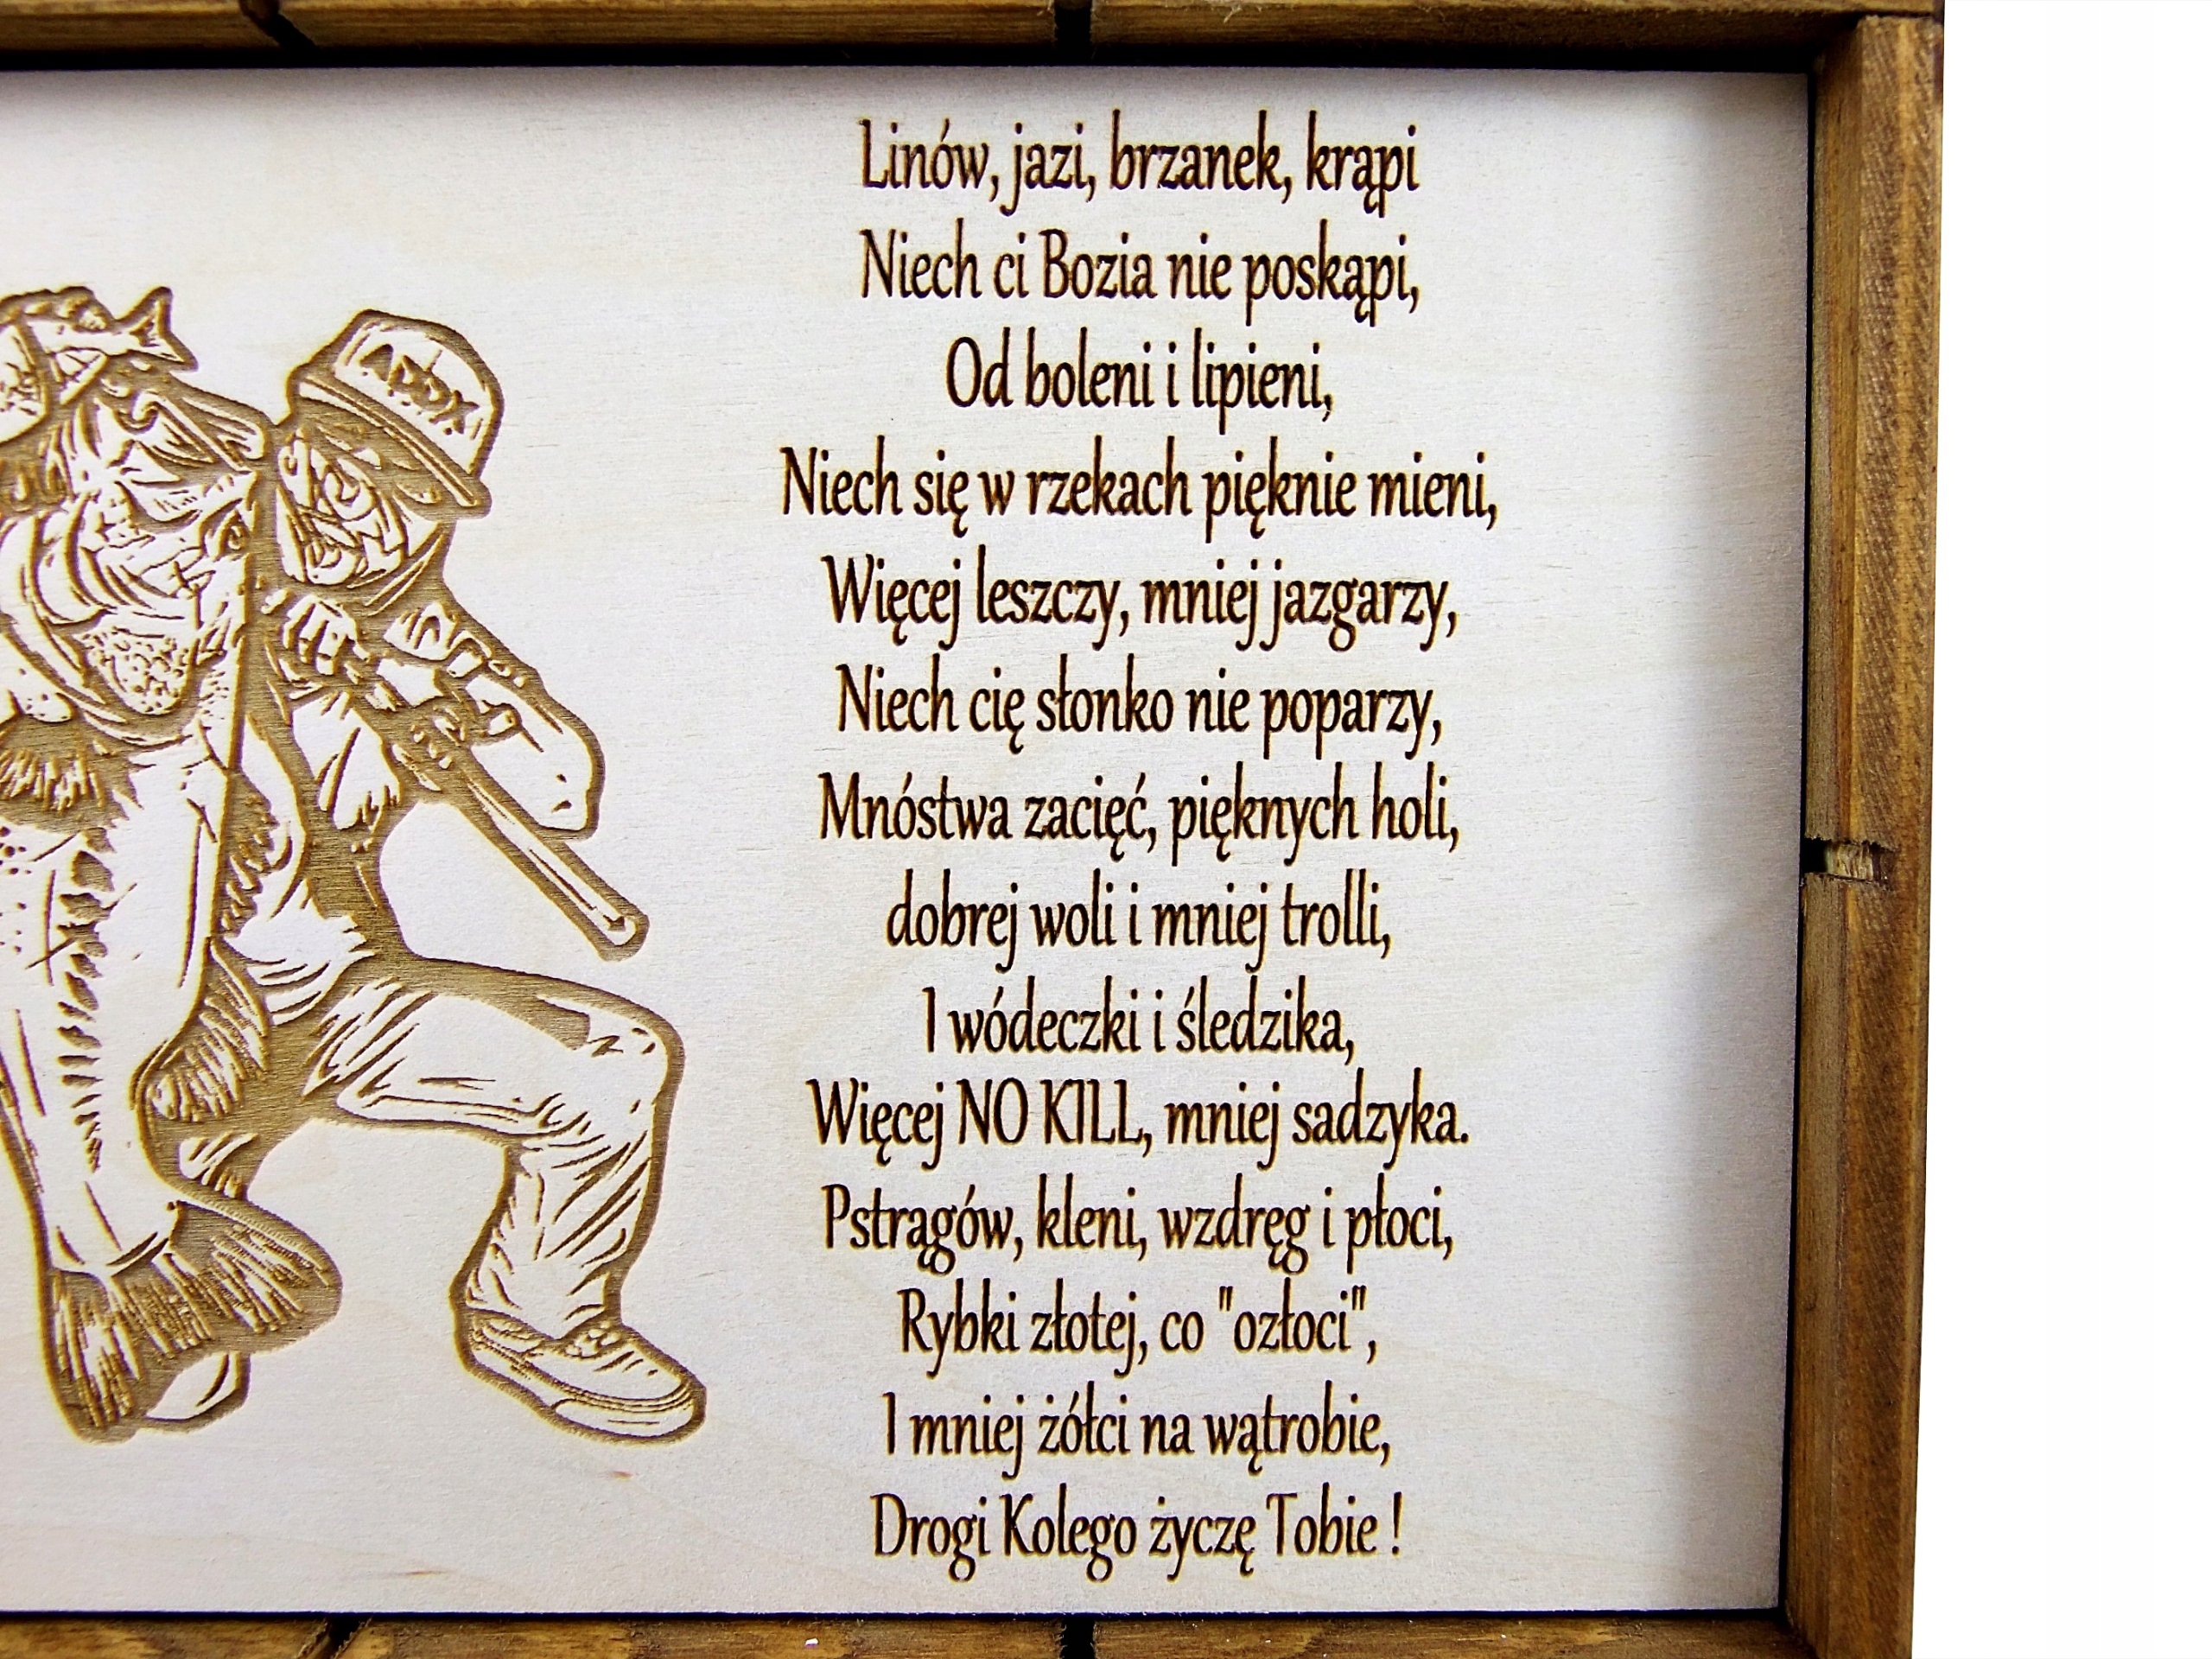 Linów, jazi, brzanek, krąpi
Niech ci Bozia nie poskąpi,
Od boleni i lipieni,
Niech się w rzekach pięknie mieni,
Więcej leszczy, mniej jazgarzy,
Niech cię słonko nie poparzy,
Mnóstwa zacięć, pięknych holi,
dobrej woli i mniej trolli,
I wódeczki i śledzika,
Więcej NO KILL, mniej sadzyka.
Pstrągów, kleni, wzdręg i płoci,
Rybki złotej, co "ozłoci",
I mniej żółci na wątrobie,
Drogi Kolego życzę Tobie !